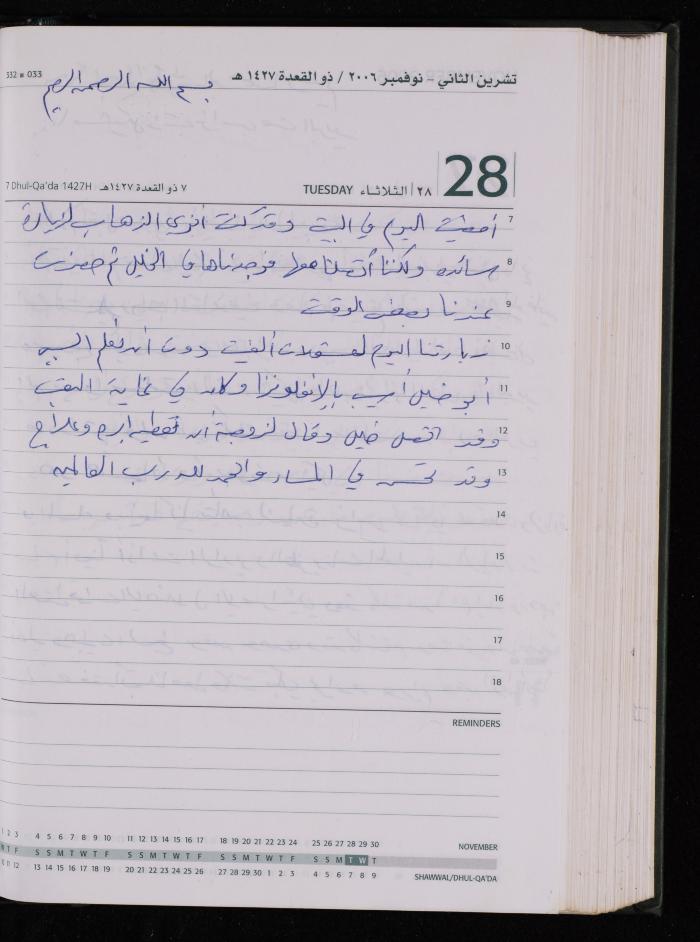 332 ■ 033
تشرين الثاني - نوفمبر ٢٠٠٦ / ذو القعدة ١٤٢٧ هـ
بسم الله الرحمن الرحيم
28
7 Dhul-Qa'da 1427H ٧ ذو القعدة ١٤٢٧هـ
TUESDAY الثلاثاء ٢٨
7 أمضيت اليوم في البيت وقد كنت أنوي الذهاب لزيارة
8 سائده ولكننا اتصلنا معها فوجدناها في الخليل ثم حضرت
9 عندنا بعض الوقت
10 زيارتنا اليوم ألغيت دون أن نعلم السبب
11 أبو خليل أصيب بالإنفلونزا وكان في غاية التعب
12 وقد اتصل خليل وقال لزوجته أن تعطيه إبره وعلاج
13 وقد تحسن في المساء والحمد لله رب العالمين
14
15
16
17
18
REMINDERS
1 2 3 4 5 6 7 8 9 10 11 12 13 14 15 16 17 18 19 20 21 22 23 24 25 26 27 28 29 30 NOVEMBER
W T F S S M T W T F S S M T W T F S S M T W T F S S M T W T
10 11 12 13 14 15 16 17 18 19 20 21 22 23 24 25 26 27 28 29 30 1 2 3 4 5 6 7 8 9 SHAWWAL/DHUL-QA'DA